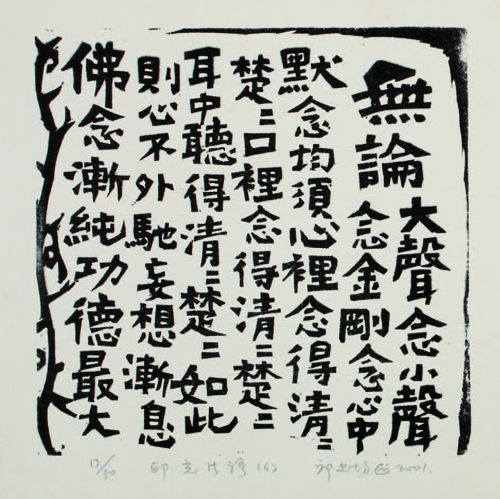 無論
大聲念小聲
念金剛念心中
默念均須心裡念得清〻
楚〻口裡念得清〻楚〻
耳中聽得清〻楚〻如此
則心不外馳妄想漸息
佛念漸純功德最大
印光法語
2001.